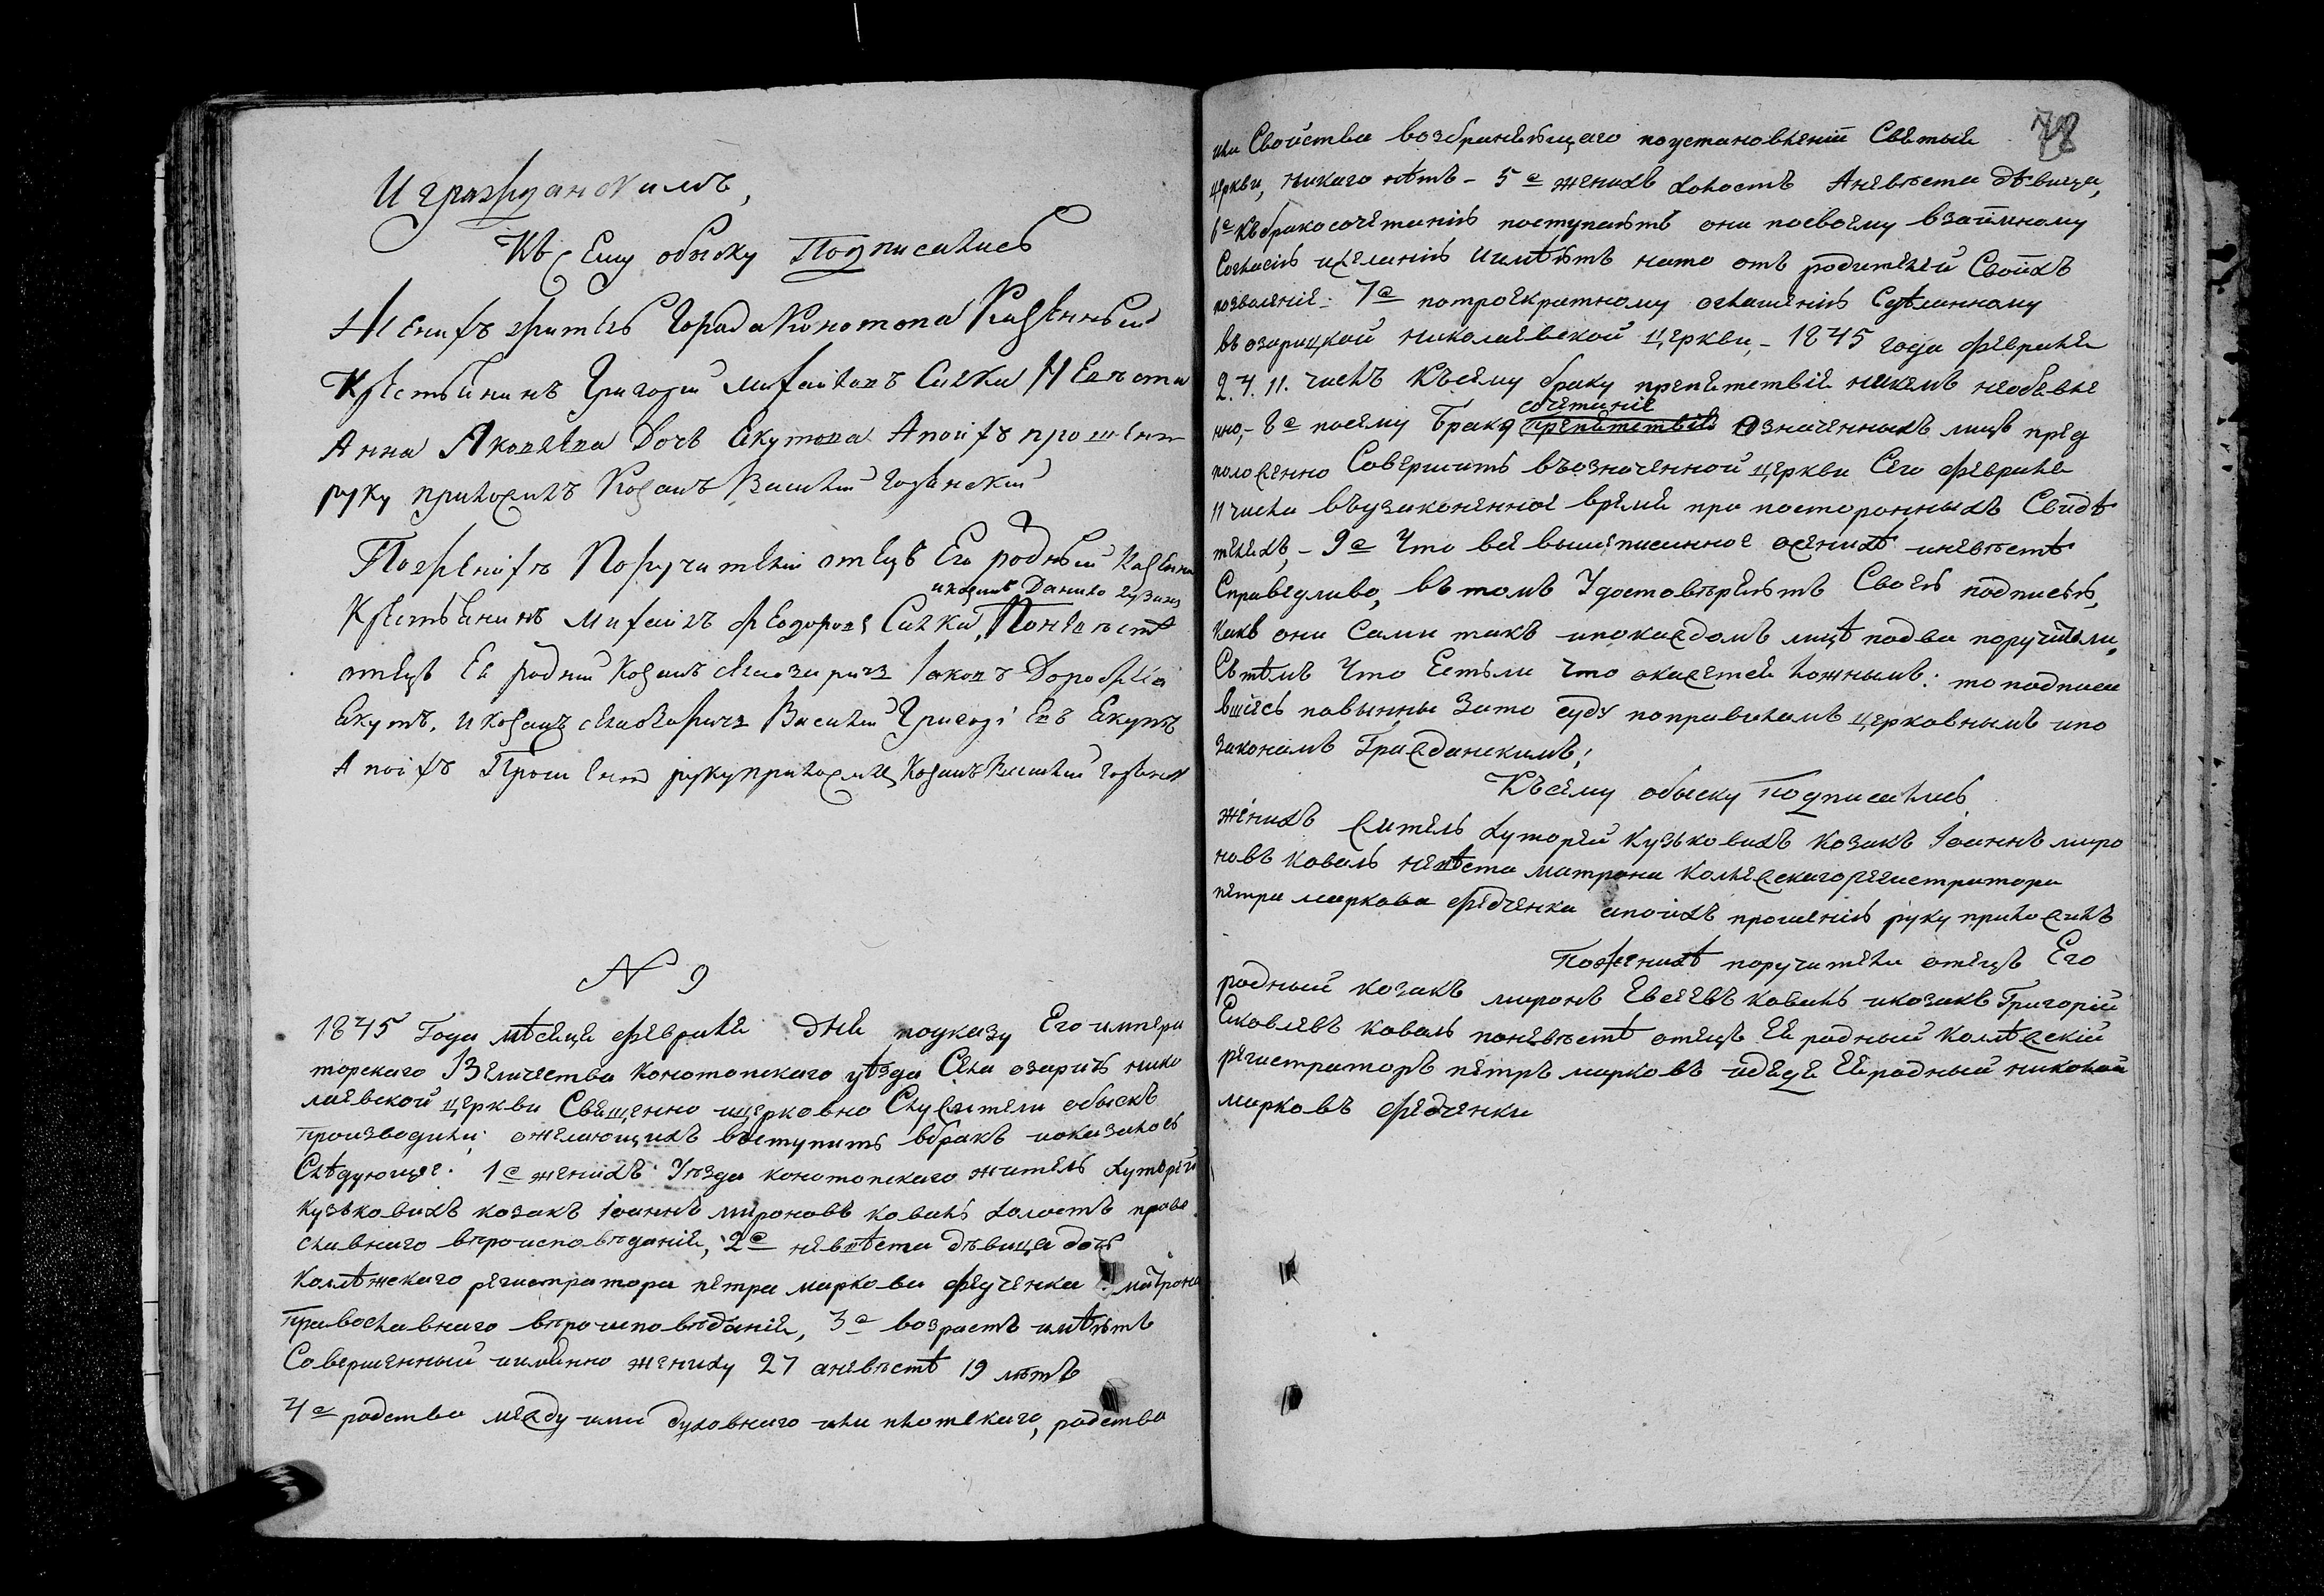 И гражданскимъ,
Къ сему обыску Подписались
Женихъ житель Города Конотопа Казенный
Крестьянинъ Григорій михайловъ Силка Невѣста
Анна Яковлева дочь Якутова Апоихъ прошенію
руку приложилъ Козакъ Василій
Поженихѣ Поручители отецъ Его родный Казенный
икозакъ Данило
Крестьянинъ михаилъ Феодоровъ Силка, Поневѣстѣ
отецъ Ея родный Козакъ Іаковъ Дорофіевъ
Якутъ. икозакъ Василій Григоріевъ Якутъ
Апоихъ Прошенію рукуприложилъ Козакъ Василій
№ 9
1845 Года мѣсяца февраля дня поуказу Его импера
торскаго Величества Конотопскаго уѣзда Села озаричъ нико
лаевской церкви Священно ицерковно Служители обыскъ
производили; ожелающихъ въступить вбракъ иоказалось
Слѣдующее: 1е женихъ Уѣзда конотопскаго житель хуторей
кузьковыхъ козакъ Іоаннъ мироновъ коваль холостъ право
славнаго вѣроисповѣданія, 2е невѣста дѣвица дочь
Колѣжскаго регистратора петра маркова федченка матрона
Православнаго вѣроисповѣданія, 3е возрастъ имѣютъ
Совершенный иимѣнно жениху 27 аневѣстѣ 19 лѣтъ
4е родства между ими духовнаго или плотскаго, родства
78
или Свойства возбраняющаго поустановленіи Святыя
церкви, никаго нѣтъ - 5е женихъ холостъ Аневѣста дѣвица,
6е къбракосочетанію поступаютъ они посвоему взаимному
Согласію ижеланію Иимѣютъ нато отъ родителей Своихъ
позволеніе. 7е потроекратному оглашенію Сдѣланному
въ озарицкой николаевской церкви, - 1845 года февраля
2. 4. 11. числъ Къ сему браку препятствія никемъ необъявле
нно, - 8е посему Браку сочетаніе препятствія Означенныхъ лицъ пред
положенно Совершить въозначенной церкви Сего февраля
11 числа въузаконенное время при постороннихъ Свидѣ
теляхъ, - 9е Что все вышеписанное оженихѣ иневѣстѣ
Справедливо, въ томъ Удостовѣряютъ Своею подписью,
какъ они Сами такъ ипокаждомъ лицѣ подва поручители,
Сътѣмъ Что Естьли Что окажется ложнымъ: то подписа
вшіесь повынны Зато суду поправиламъ церковнымъ ипо
законамъ Гражданскимъ;
Къ сему обыску Подписались
женихъ житель хуторей Кузьковыхъ козакъ Іоаннъ миро
новъ коваль невѣста матрона Колежскагорегистратора
петра маркова федченка апоихъ прошенію руку приложилъ
Поженихѣ поручители отецъ Его
родный козакъ миронъ Евсеевъ коваль икозакъ Григорій
Яковлевъ коваль поневѣстѣ отецъ Ея родный Колѣжскій
регистраторъ петръ марковъ идядя Ея родный николай
марковъ федченки